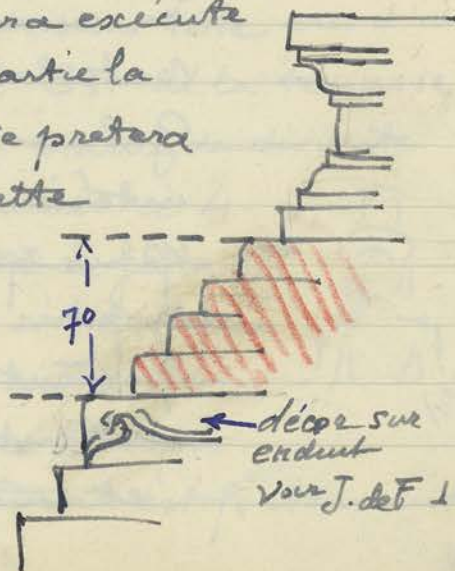 ra exécute
artie la
e pretera
ette
70
décor sur
enduit
voir J. de F 1